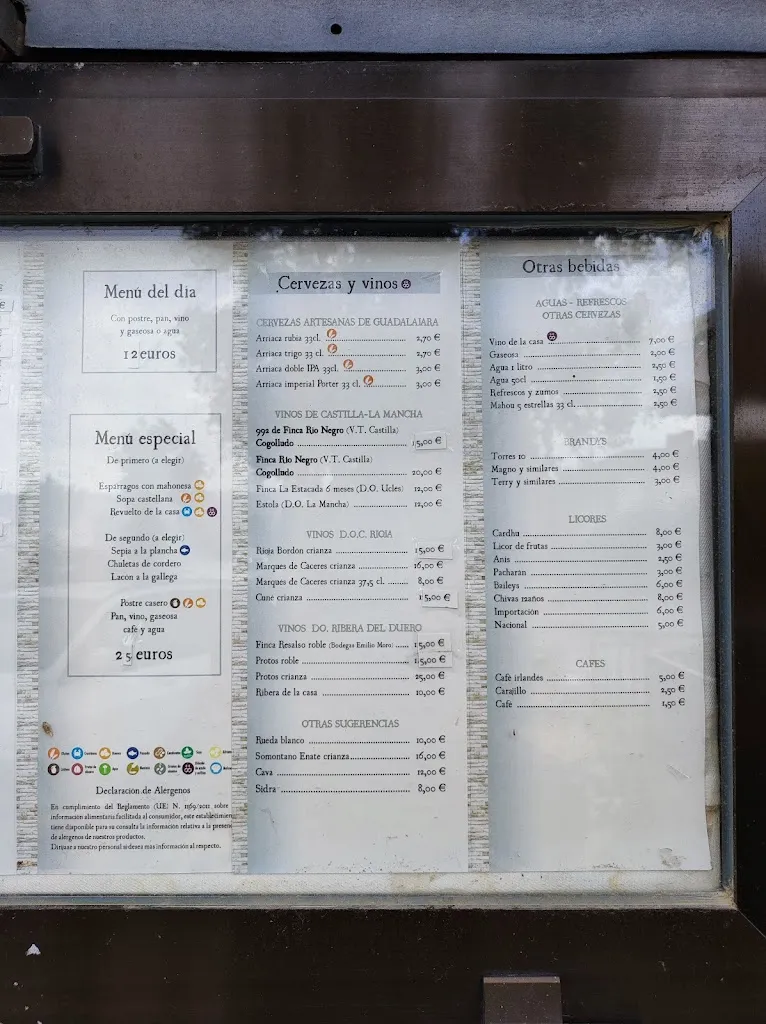 Menú del dia
Con postre, pan, vino
y gaseosa o agua
12 euros
Menú especial
De primero (a elegir)
Espárragos con mahonesa
Sopa castellana
Revuelto de la casa
De segundo (a elegir)
Sepia a la plancha
Chuletas de cordero
Lacon a la gallega
Postre casero
Pan, vino, gaseosa
café y agua
25 euros
Declaracion de Alergenos
En cumplimiento del Reglamento (UE) N. 1169/2011 sobre
informacion alimentaria facilitada al consumidor, este establecimien
tiene disponible para su consulta la informacion relativa a la presen
de alergenos de nuestros productos.
Dirijase a nuestro personal si desea mas informacion al respecto.
Cervezas y vinos
CERVEZAS ARTESANAS DE GUADALAJARA
Arriaca rubia 33cl. 2,70 €
Arriaca trigo 33 cl. 2,70 €
Arriaca doble IPA 33cl. 3,00 €
Arriaca imperial Porter 33 cl. 3,00 €
VINOS DE CASTILLA-LA MANCHA
992 de Finca Rio Negro (V.T. Castilla)
Cogolludo 15,00 €
Finca Rio Negro (V.T. Castilla)
Cogolludo 20,00 €
Finca La Estacada 6 meses (D.O. Ucles) 12,00 €
Estola (D.O. La Mancha) 12,00 €
VINOS D.O.C. RIOJA
Rioja Bordon crianza 15,00 €
Marques de Caceres crianza 16,00 €
Marques de Caceres crianza 37,5 cl. 8,00 €
Cune crianza 15,00 €
VINOS DO. RIBERA DEL DUERO
Finca Resalso roble (Bodegas Emilio Moro) 15,00 €
Protos roble 15,00 €
Protos crianza 25,00 €
Ribera de la casa 10,00 €
OTRAS SUGERENCIAS
Rueda blanco 10,00 €
Somontano Enate crianza 16,00 €
Cava 12,00 €
Sidra 8,00 €
Otras bebidas
AGUAS - REFRESCOS
OTRAS CERVEZAS
Vino de la casa 7,00 €
Gaseosa 2,00 €
Agua 1 litro 2,50 €
Agua 50cl 1,50 €
Refrescos y zumos 2,50 €
Mahou 5 estrellas 33 cl. 2,50 €
BRANDYS
Torres 10 4,00 €
Magno y similares 4,00 €
Terry y similares 3,00 €
LICORES
Cardhu 8,00 €
Licor de frutas 3,00 €
Anis 2,50 €
Pacharan 3,00 €
Baileys 6,00 €
Chivas 12años 8,00 €
Importación 6,00 €
Nacional 5,00 €
CAFES
Café irlandes 5,00 €
Carajillo 2,50 €
Cafe 1,50 €